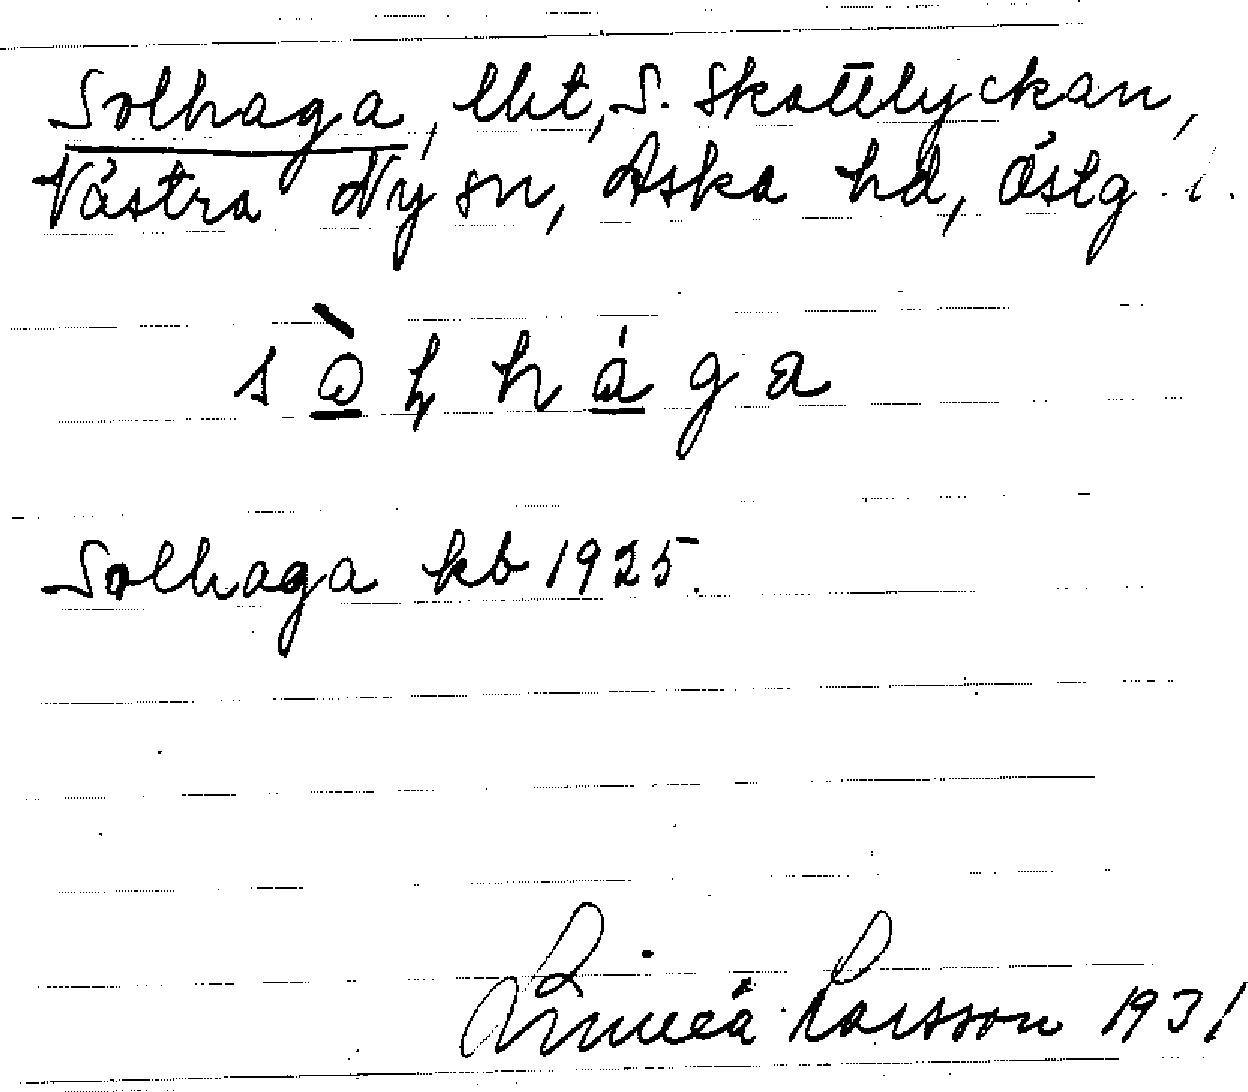 Solhaga, lht, S. Skattlyckan,
Västra Ny sn, Aska hd, Östg. l.
Solhaga kb 1925.
Linneá Larsson 1931